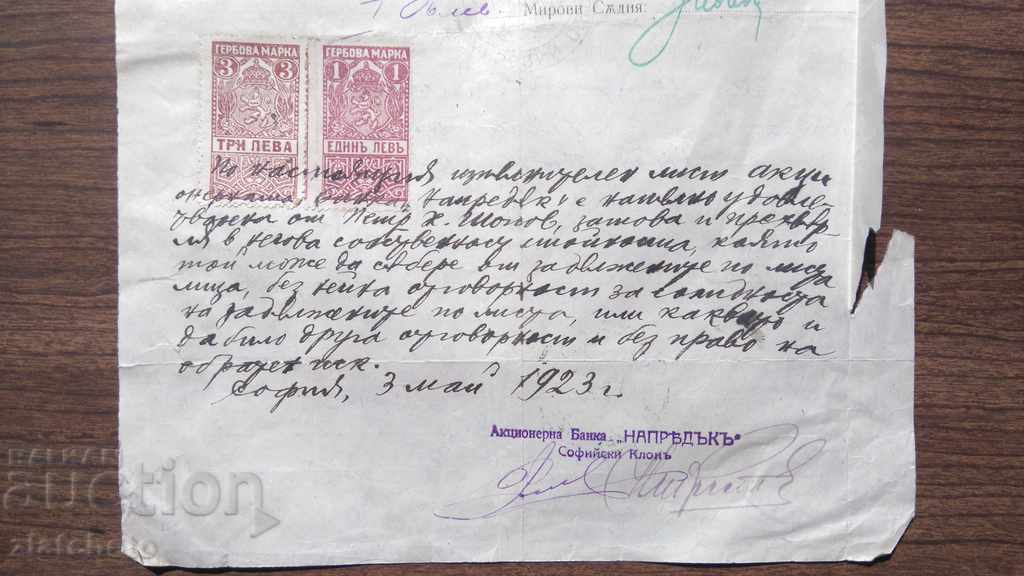 Мирови Съдия:
ГЕРБОВА МАРКА ГЕРБОВА МАРКА
3 3 1 1
ТРИ ЛЕВА ЕДИНЪ ЛЕВЪ
По настоящия изпълнителен лист акци
онерната банка "Напредък" е напълно удовле-
творена от Петър Х. Попов, затова и прехвър
ля в негова собственост стойността, която
той може да събере от задължените по листа
лица, без нейна отговорност за солидността
на задължените по листа, или каквато и
да било друга отговорност и без право на
обратен иск.
София, 3 май 1923 г.
Акционерна Банка „НАПРЕДЪКЪ"
Софийски Клонъ
BALKAN
auction
zlatchoto